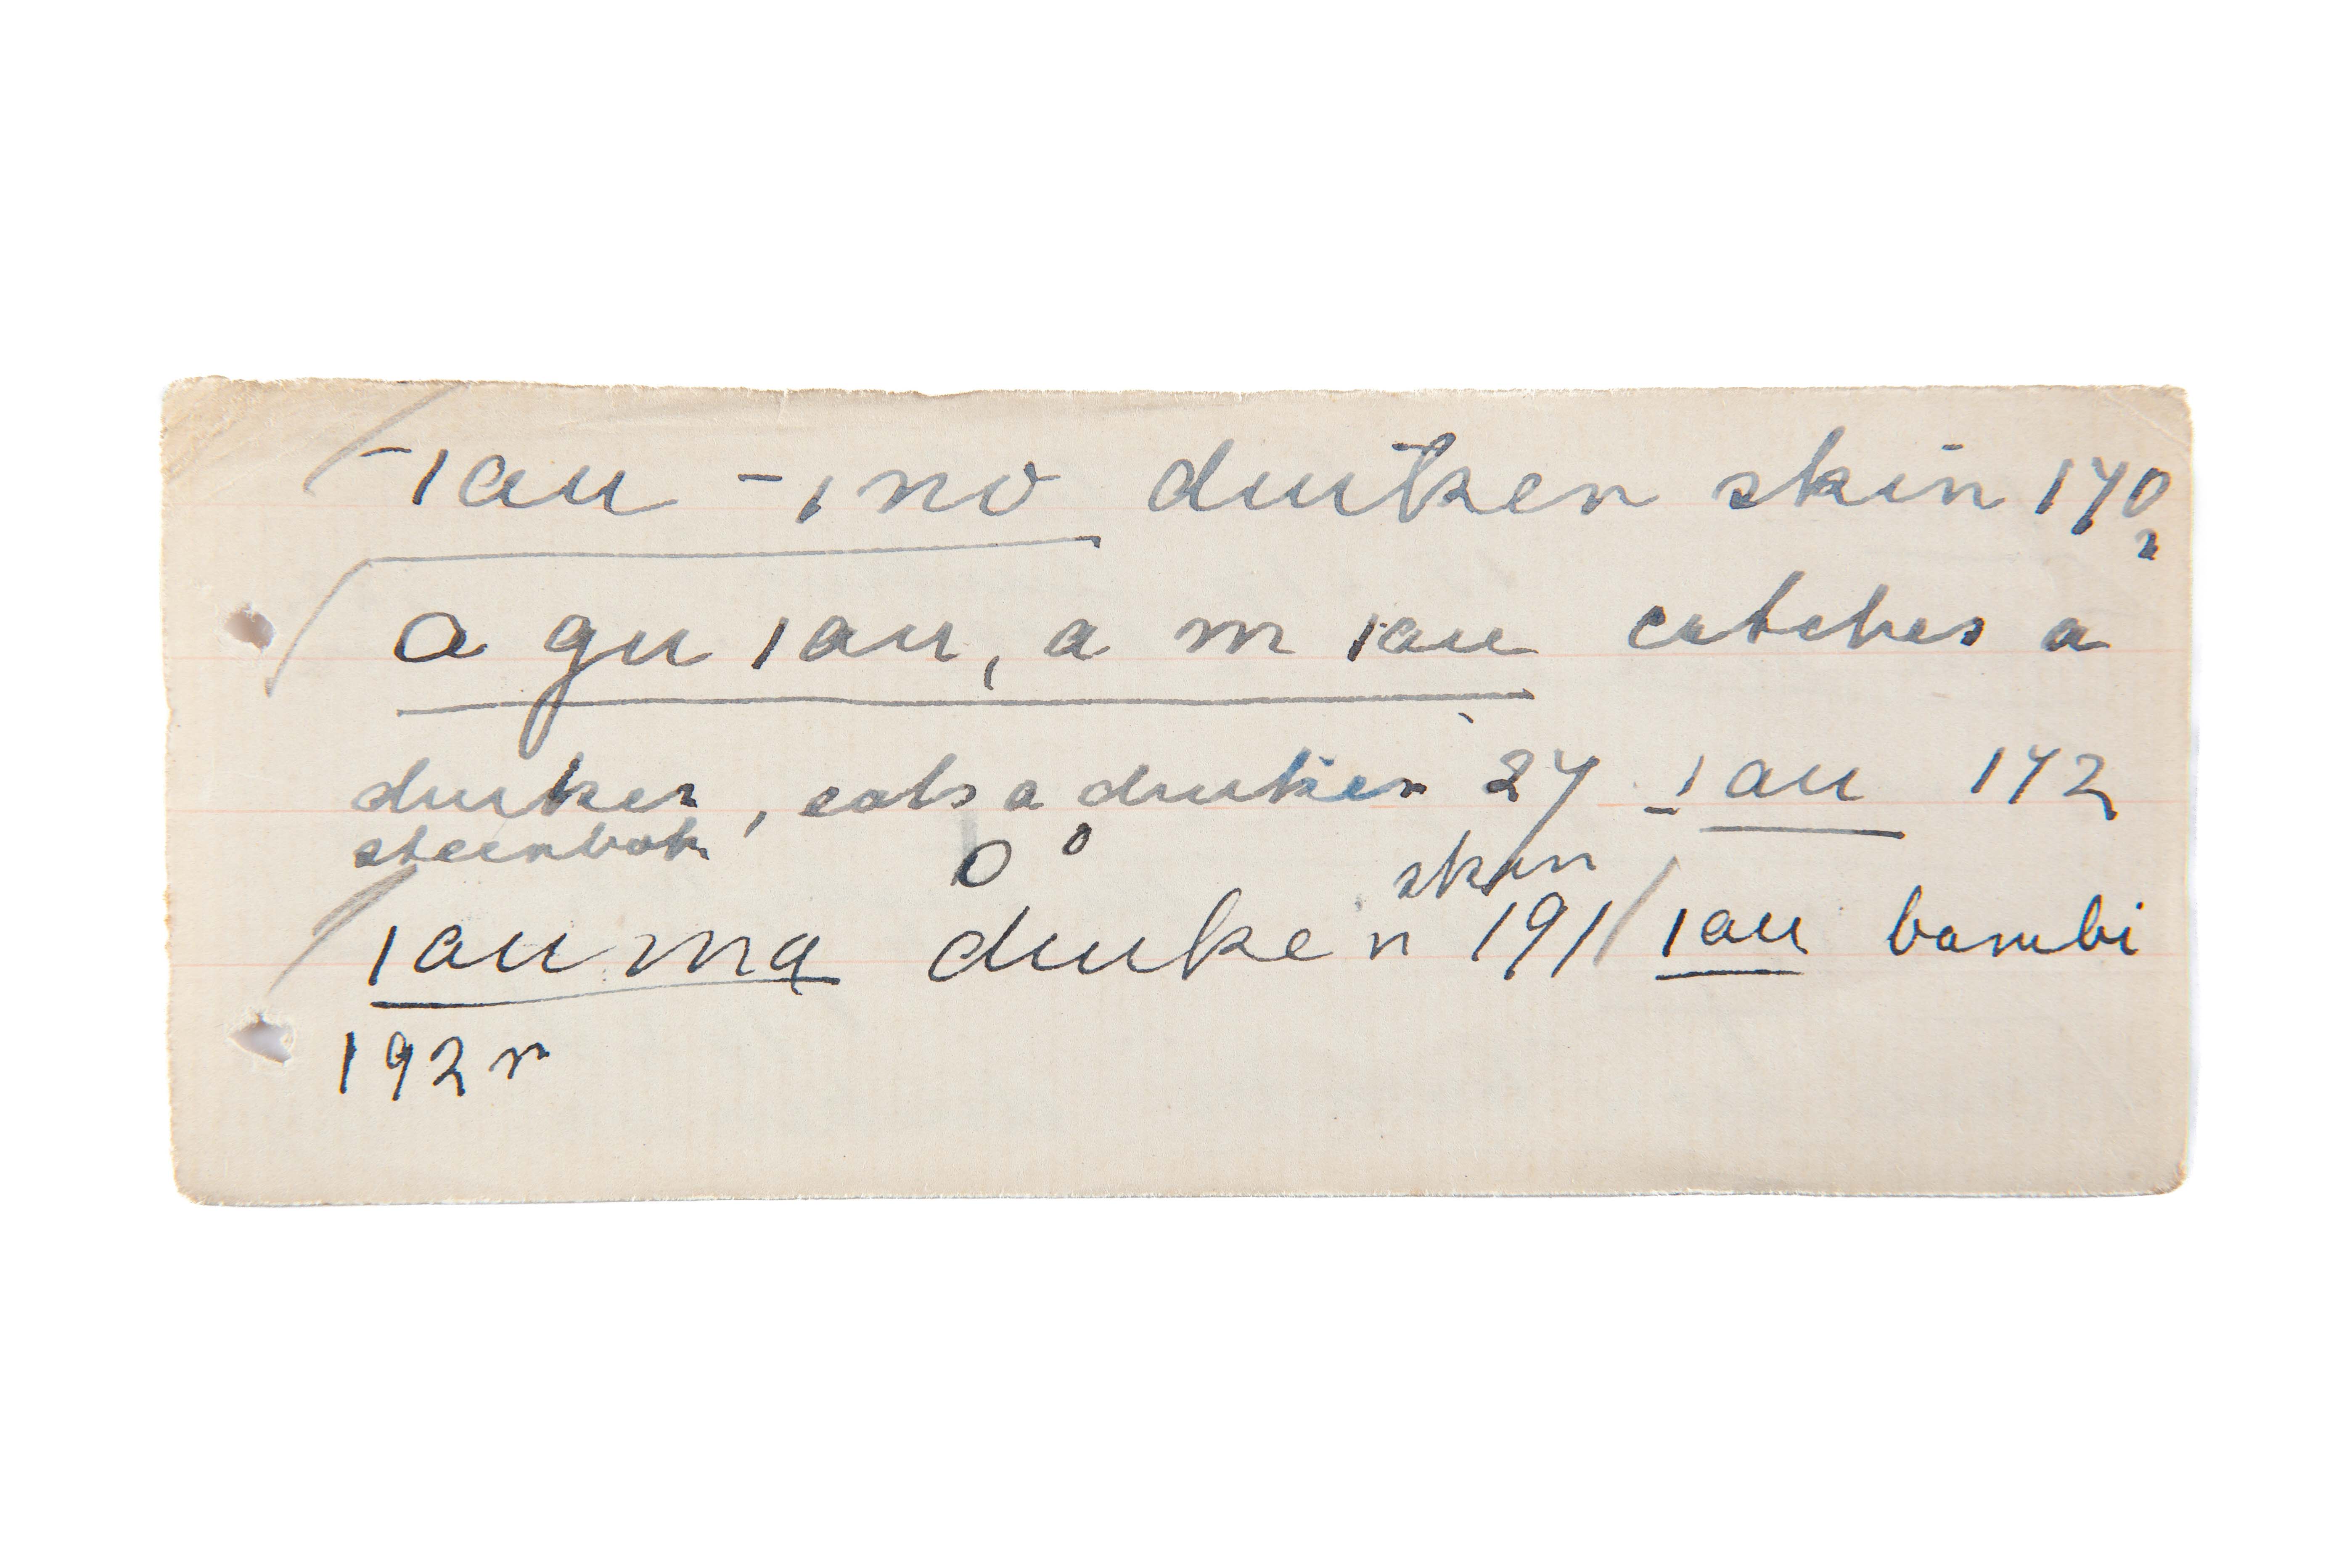 ˉ|au ˉ|no duiker skin 170
n
a gu |au, a m |au catches a
duiker, eats a duiker 27 _|au 172
steenbok 0 0 skin
|auma duiker 191 |au bambi
192 n